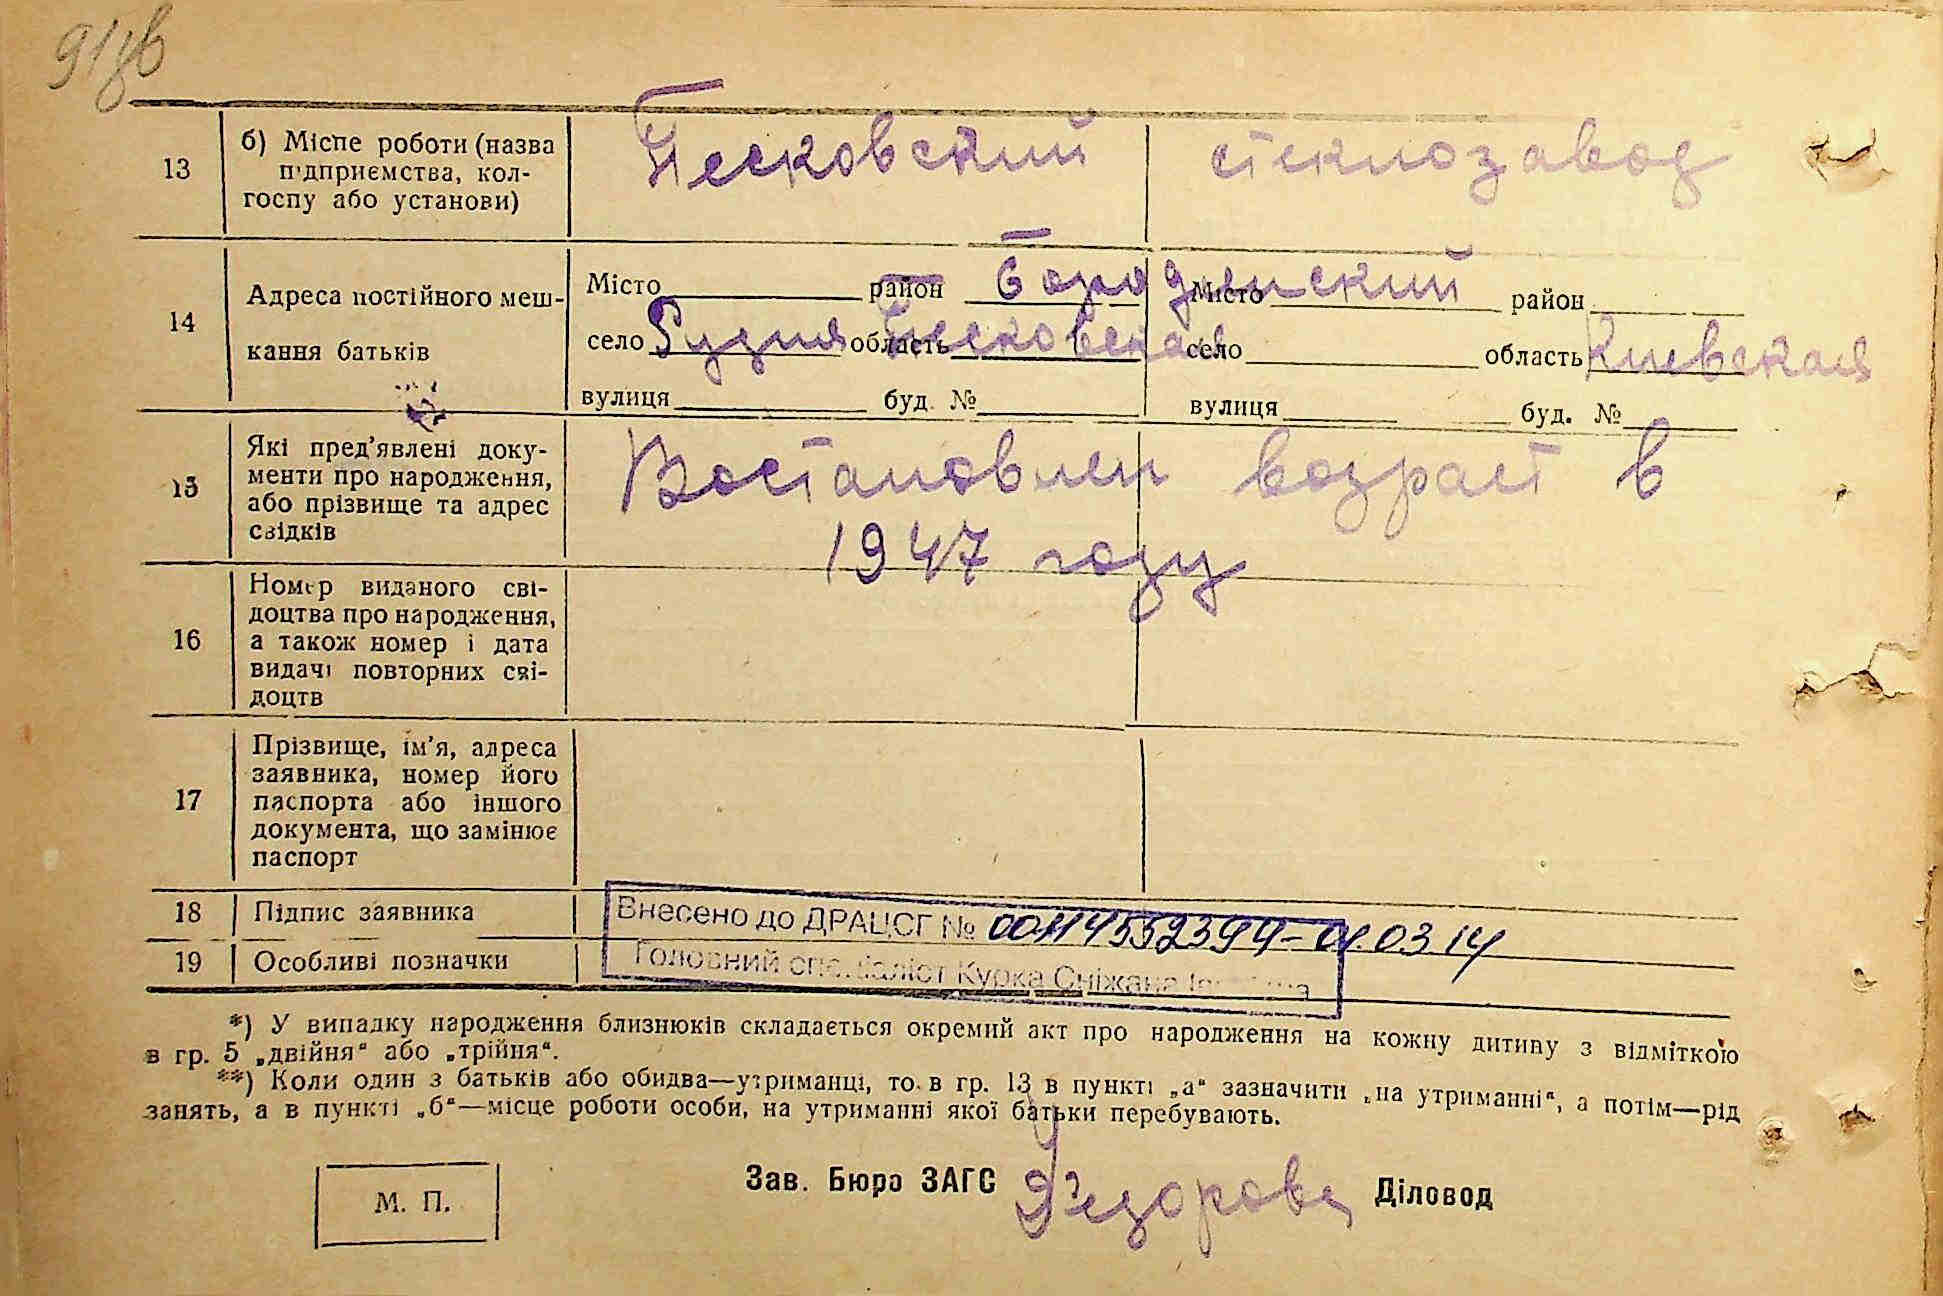 91зв
13 б) Місце роботи (назва підприємства, колгоспу або установи) Песковский стеклозавод
14 Адреса постійного мешкання батьків
Місто район Бородянский Місто район
село Рудня Песковская область село область Киевская
вулиця буд. № вулиця буд. №
15 Які пред'явлені документи про народження, або прізвище та адрес свідків
Востановлен возраст в
1947 году
16 Номер виданого свідоцтва про народження, а також номер і дата видачі повторних свідоцтв
17 Прізвище, ім'я, адреса заявника, номер його паспорта або іншого документа, що замінює паспорт
18 Підпис заявника
Внесено до ДРАЦСГ № 00114552394-01.03.14
19 Особливі позначки
Головний спеціаліст Курка Сніжана
*) У випадку народження близнюків складається окремий акт про народження на кожну дитину з відміткою
в гр. 5 „двійня“ або „трійня“.
**) Коли один з батьків або обидва—утриманці, то в гр. 13 в пункті „а“ зазначити „на утриманні“, а потім—рід
занять, а в пункті „б“—місце роботи особи, на утриманні якої батьки перебувають.
М. П.
Зав. Бюро ЗАГС Федорова Діловод